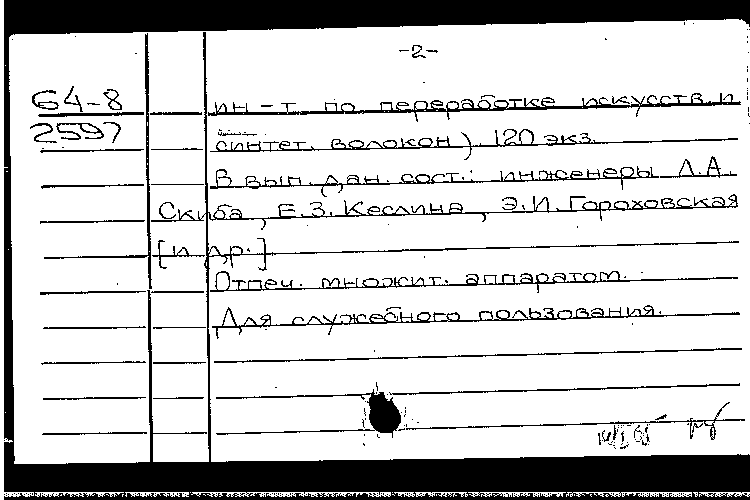 -2-
64-8 ин-т по переработке искусств. и
2597 синтет. волокон). 120 экз.
В вып. дан. сост.: инженеры Л.А.
Скиба, Е.З. Кеслина, Э.И. Гороховская
[и др.]
Отпеч. множит. аппаратом.
Для служебного пользования.